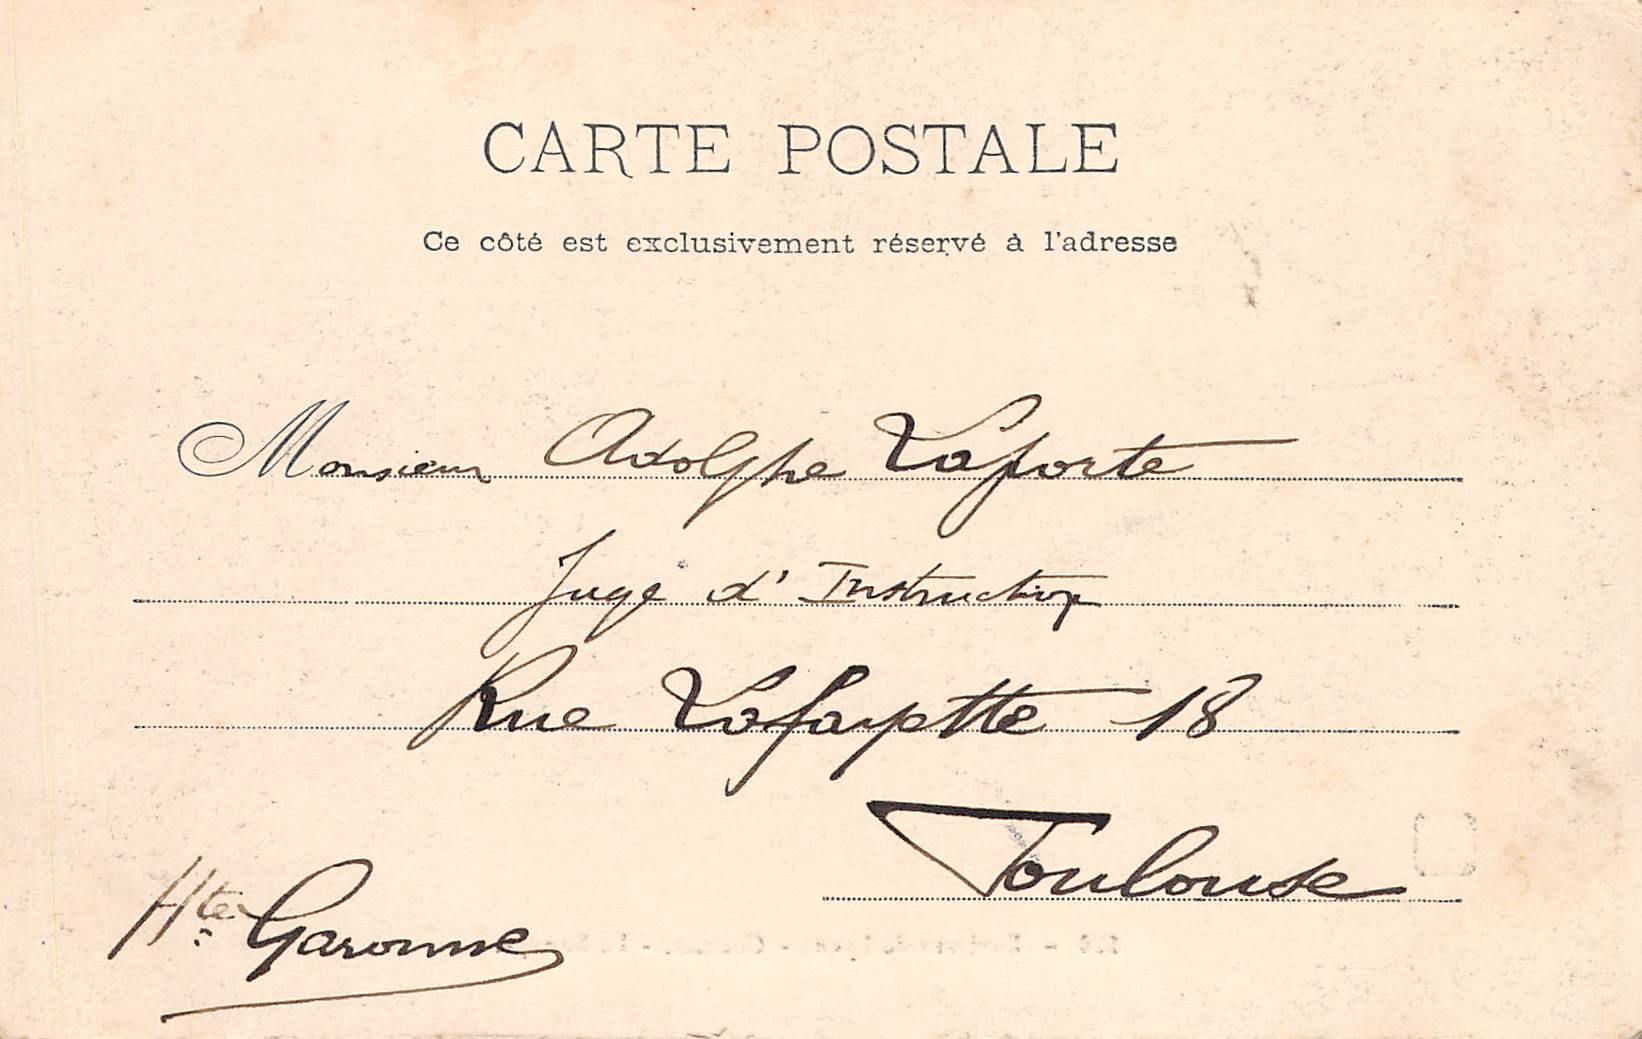 CARTE POSTALE
Ce côté est exclusivement réservé à l'adresse
Monsieur Adolphe Laporte
Juge d'Instruction
Rue Lafayette 18
Toulouse
Hte Garonne